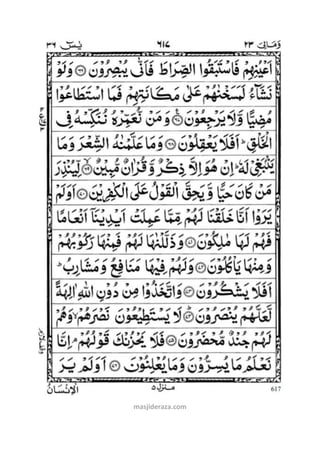 وَمَالِيَ ٢٣ ٦١٧ يٰسٓ ٣٦
اَعْيُنِهِمْ فَاسْتَبَقُوا الصِّرَاطَ فَاَنّٰى يُبْصِرُوْنَ ﴿٦٦﴾ وَلَوْ
نَشَآءُ لَمَسَخْنٰهُمْ عَلٰى مَكَانَتِهِمْ فَمَا اسْتَطَاعُوْا
مُضِيًّا وَّلَا يَرْجِعُوْنَ ﴿٦٧﴾ وَمَنْ نُّعَمِّرْهُ نُنَكِّسْهُ فِى
الْخَلْقِ ؕ اَفَلَا يَعْقِلُوْنَ ﴿٦٨﴾ وَمَا عَلَّمْنٰهُ الشِّعْرَ وَمَا
يَنْۢبَغِيْ لَهٗ ؕ اِنْ هُوَ اِلَّا ذِكْرٌ وَّ قُرْاٰنٌ مُّبِيْنٌ ﴿٦٩﴾ لِّيُنْذِرَ
مَنْ كَانَ حَيًّا وَّ يَحِقَّ الْقَوْلُ عَلَى الْكٰفِرِيْنَ ﴿٧٠﴾ اَوَلَمْ
يَرَوْا اَنَّا خَلَقْنَا لَهُمْ مِّمَّا عَمِلَتْ اَيْدِيْنَاۤ اَنْعَامًا
فَهُمْ لَهَا مٰلِكُوْنَ ﴿٧١﴾ وَ ذَلَّلْنٰهَا لَهُمْ فَمِنْهَا رَكُوْبُهُمْ
وَمِنْهَا يَاْكُلُوْنَ ﴿٧٢﴾ وَلَهُمْ فِيْهَا مَنَافِعُ وَمَشَارِبُ ؕ
اَفَلَا يَشْكُرُوْنَ ﴿٧٣﴾ وَاتَّخَذُوْا مِنْ دُوْنِ اللّٰهِ اٰلِهَةً
لَّعَلَّهُمْ يُنْصَرُوْنَ ﴿٧٤﴾ لَا يَسْتَطِيْعُوْنَ نَصْرَهُمْ ۙ وَهُمْ
لَهُمْ جُنْدٌ مُّحْضَرُوْنَ ﴿٧٥﴾ فَلَا يَحْزُنْكَ قَوْلُهُمْ ۘ اِنَّا
نَعْلَمُ مَا يُسِرُّوْنَ وَمَا يُعْلِنُوْنَ ﴿٧٦﴾ اَوَلَمْ يَرَ
الْاِنْسَانُ
منزل ٥
617
masjideraza.com